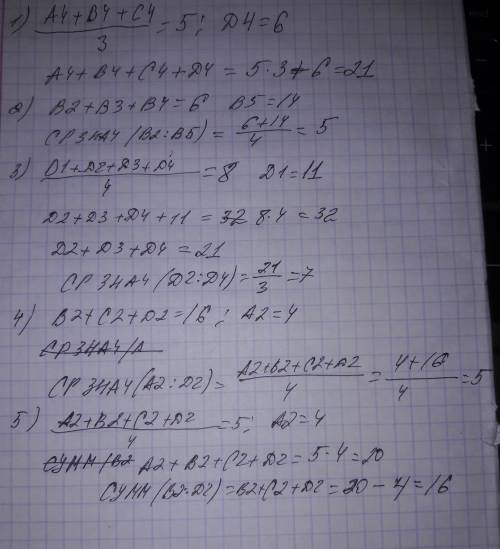 1) (A4+B4+C4)/3 = 5; D4=6
A4+B4+C4+D4 = 5·3+6=21
2) B2+B3+B4=6 B5=14
СРЗНАЧ(B2:B5) = (6+14)/4 = 5
3) (D1+D2+D3+D4)/4 = 8 D1=11
D2+D3+D4+11 = 32 8·4=32
D2+D3+D4=21
СРЗНАЧ(D2:D4) = 21/3 = 7
4) B2+C2+D2=16; A2=4
СРЗНАЧ(A
СРЗНАЧ(A2:D2) = (A2+B2+C2+D2)/4 = (4+16)/4 = 5
5) (A2+B2+C2+D2)/4 = 5; A2=4
СУММ(B2 A2+B2+C2+D2=5·4=20
СУММ(B2:D2)=B2+C2+D2=20-4=16